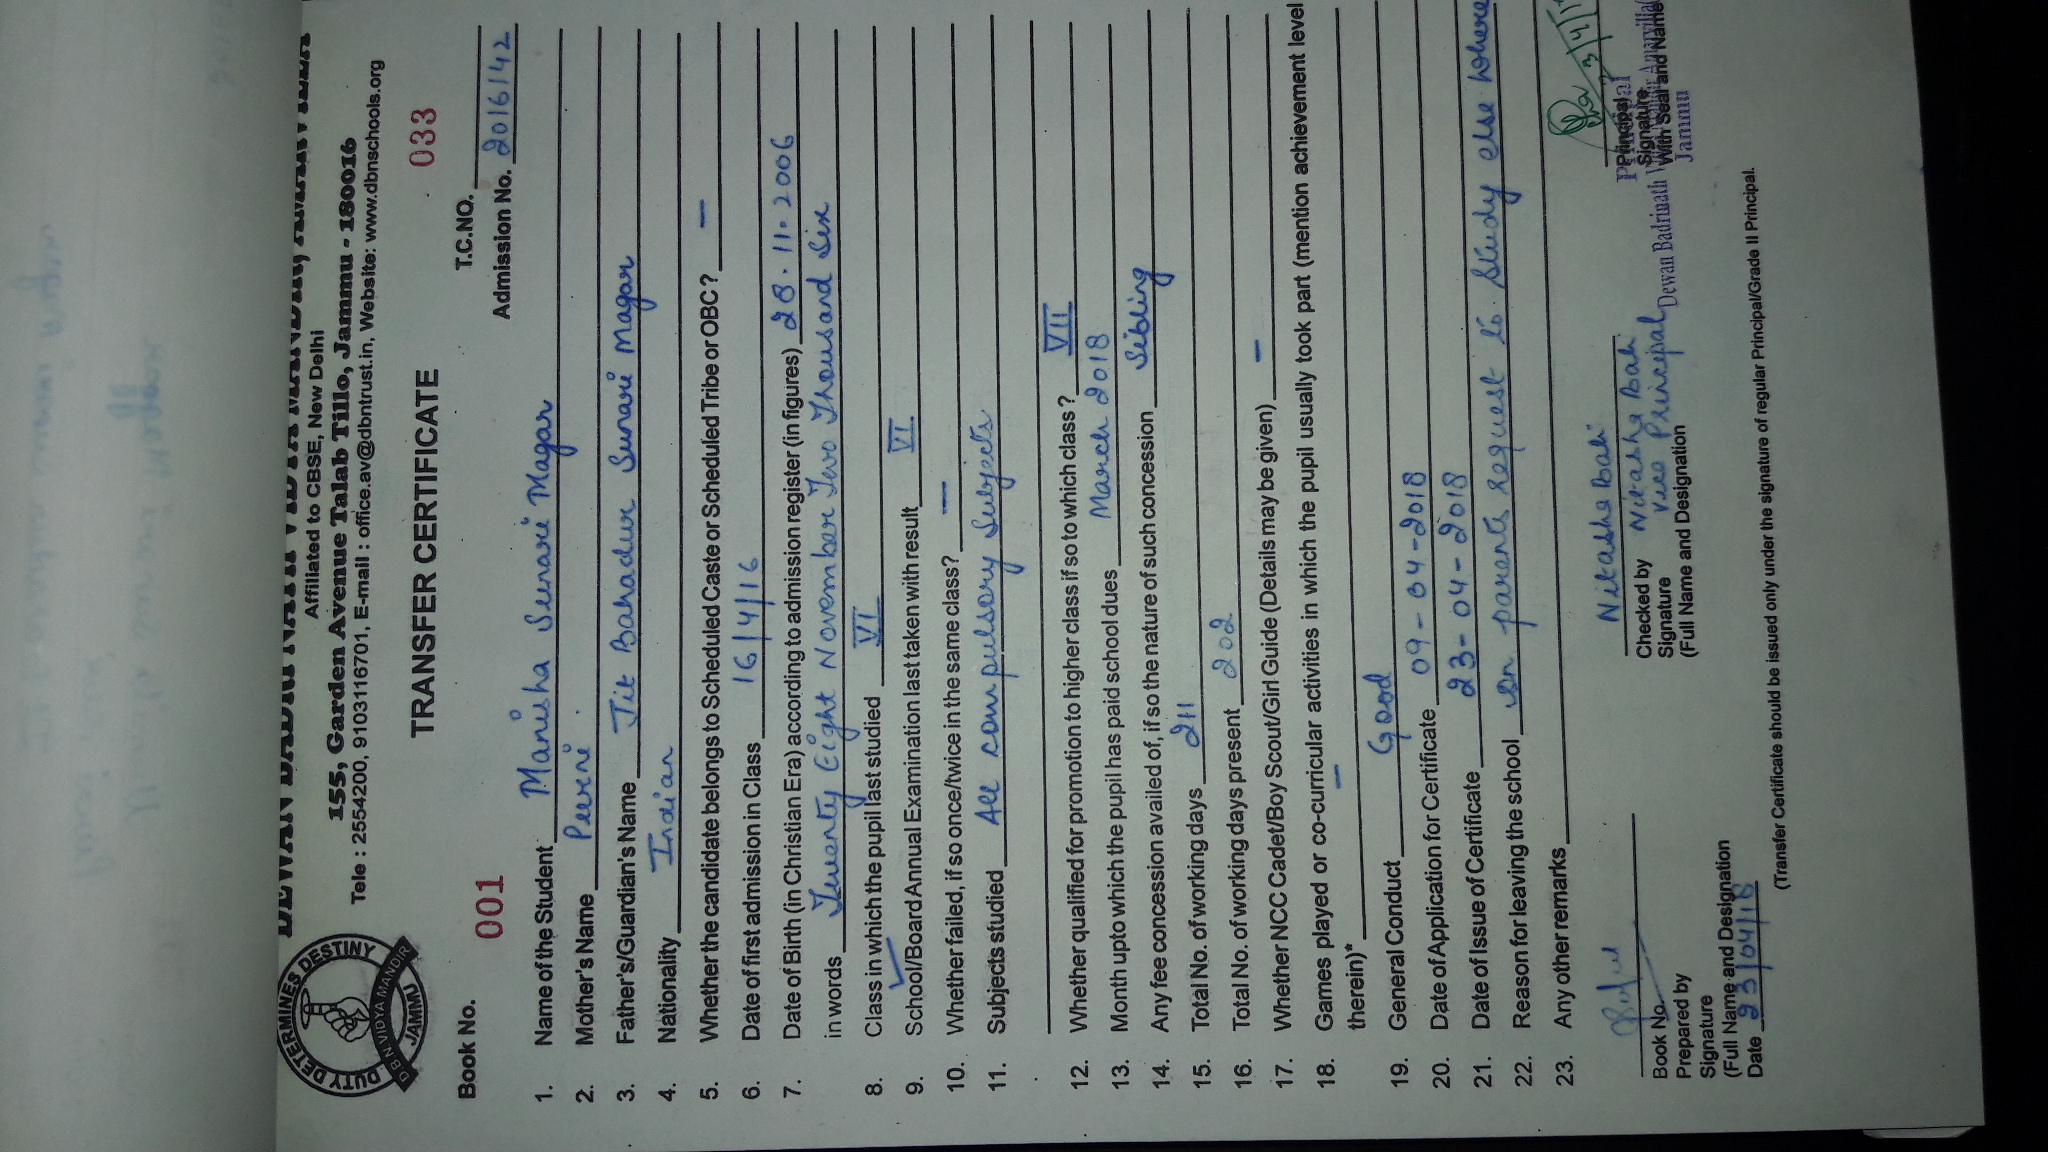 DEWAN BADRI NATH VIDYA MANDIR, AMARVILLA
Affiliated to CBSE, New Delhi
155, Garden Avenue Talab Tillo, Jammu - 180016
Tele : 2554200, 9103116701, E-mail : office.av@dbntrust.in, Website: www.dbnschools.org
DUTY DETERMINES DESTINY
D.B.N. VIDYA MANDIR
JAMMU
TRANSFER CERTIFICATE
Book No. 001 T.C.NO. 033
Admission No. 2016/42
1. Name of the Student Manisha Sunari Magar
2. Mother's Name Peevri
3. Father's/Guardian's Name Jit Bahadur Sunari Magar
4. Nationality Indian
5. Whether the candidate belongs to Scheduled Caste or Scheduled Tribe or OBC? —
6. Date of first admission in Class 16/4/16
7. Date of Birth (in Christian Era) according to admission register (in figures) 28.11.2006
in words Twenty Eight November Two Thousand Six
8. Class in which the pupil last studied VI
9. School/Board Annual Examination last taken with result VI
10. Whether failed, if so once/twice in the same class? —
11. Subjects studied All compulsory Subjects
12. Whether qualified for promotion to higher class if so to which class? VII
13. Month upto which the pupil has paid school dues March 2018
14. Any fee concession availed of, if so the nature of such concession Sibling
15. Total No. of working days 211
16. Total No. of working days present 202
17. Whether NCC Cadet/Boy Scout/Girl Guide (Details may be given) —
18. Games played or co-curricular activities in which the pupil usually took part (mention achievement level
therein)* —
19. General Conduct Good
20. Date of Application for Certificate 09-04-2018
21. Date of Issue of Certificate 23-04-2018
22. Reason for leaving the school On parents request to study else where
23. Any other remarks
Book No.
Prepared by
Signature
(Full Name and Designation
Date 23/04/18
Nitasha Bali
Checked by Nitasha Bali
Signature Vice Principal
(Full Name and Designation
Principal
Signature
With Seal and Name
Principal
Dewan Badrinath Vidya Mandir Amarvilla
Jammu
(Transfer Certificate should be issued only under the signature of regular Principal/Grade II Principal.